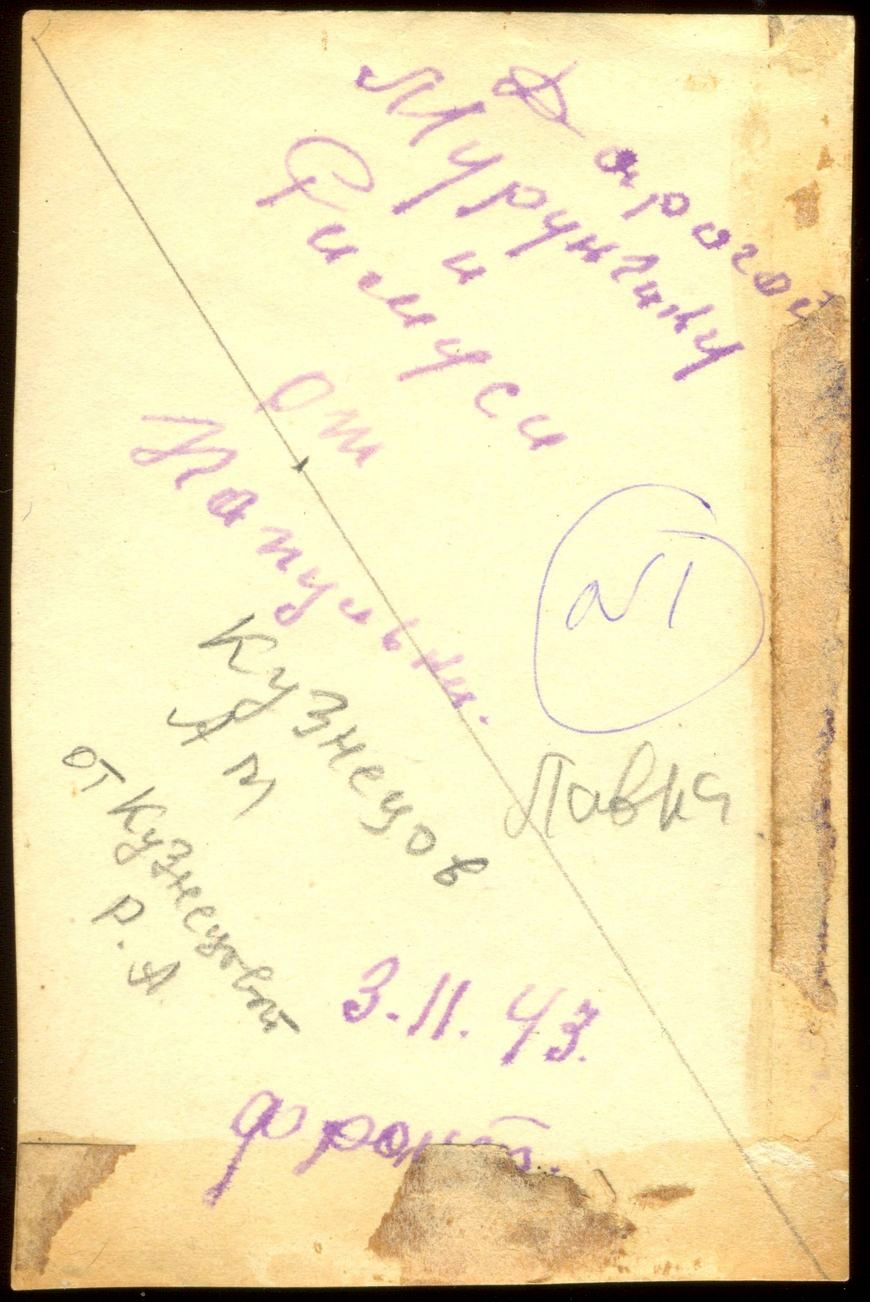 Дарогой
Мурунчику
и
Римуси
от
Папульки.
Кузнецов
А М
от Кузнецовой
Р. А.
3.11.43.
фронт.